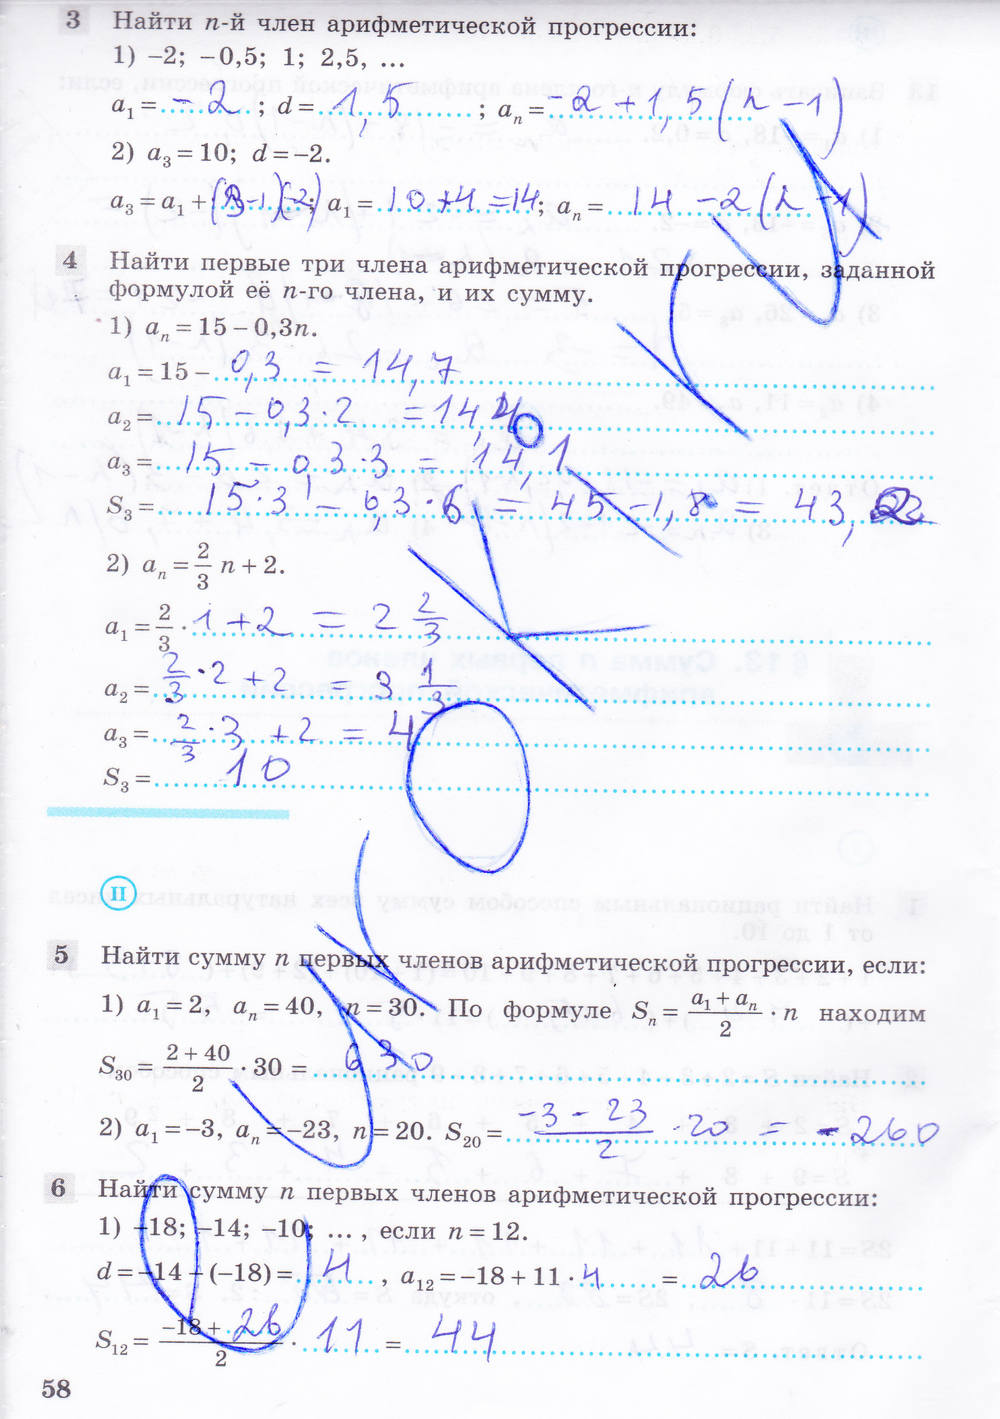 3 Найти n-й член арифметической прогрессии:
1) –2; –0,5; 1; 2,5, ...
a₁ = –2; d = 1,5; aₙ = –2 + 1,5(n – 1)
2) a₃ = 10; d = –2.
a₃ = a₁ + (3–1)(–2); a₁ = 10+4=14; aₙ = 14 – 2(n – 1)
4 Найти первые три члена арифметической прогрессии, заданной
формулой её n-го члена, и их сумму.
1) aₙ = 15 – 0,3n.
a₁ = 15 – 0,3 = 14,7
a₂ = 15 – 0,3·2 = 14,4
a₃ = 15 – 0,3·3 = 14,1
S₃ = 15·3 – 0,3·6 = 45 – 1,8 = 43,2
2) aₙ = 2/3 n + 2.
a₁ = 2/3 · 1 + 2 = 2 2/3
a₂ = 2/3 · 2 + 2 = 3 1/3
a₃ = 2/3 · 3 + 2 = 4
S₃ = 10
II
5 Найти сумму n первых членов арифметической прогрессии, если:
1) a₁ = 2, aₙ = 40, n = 30. По формуле Sₙ = (a₁ + aₙ)/2 · n находим
S₃₀ = (2 + 40)/2 · 30 = 630
2) a₁ = –3, aₙ = –23, n = 20. S₂₀ = (–3 – 23)/2 · 20 = –260
6 Найти сумму n первых членов арифметической прогрессии:
1) –18; –14; –10; ... , если n = 12.
d = –14 – (–18) = 4, a₁₂ = –18 + 11 · 4 = 26
S₁₂ = (–18 + 26)/2 · 11 = 44
58